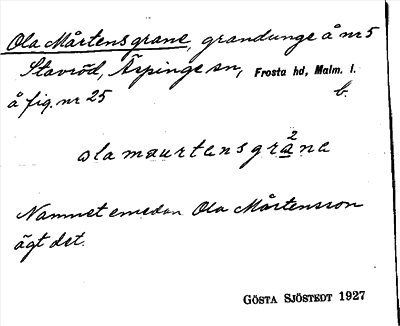 Ola Mårtensgrane, grandunge å nr 5
Stavröd, Äspinge sn, Frosta hd, Malm. l.
å fig. nr 25 b.
ola maurtansgräna
2
Namnet emedan Ola Mårtensson
ägt det.
GÖSTA SJÖSTEDT 1927